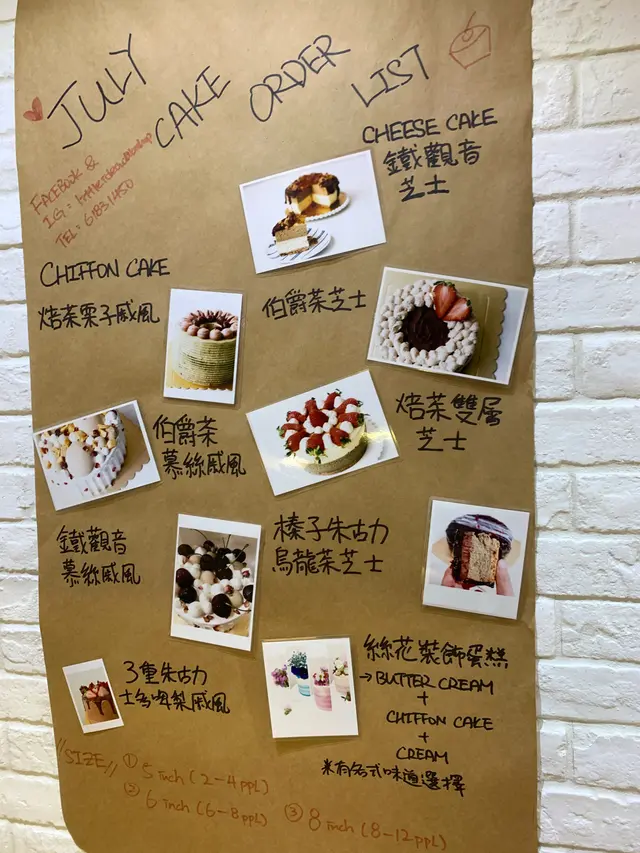 JULY CAKE ORDER LIST
FACEBOOK &
I.G.:
TEL: 61831450
CHEESE CAKE
鐵觀音
芝士
CHIFFON CAKE
焙茶栗子戚風
伯爵茶芝士
焙茶雙層
芝士
伯爵茶
慕絲戚風
鐵觀音
慕絲戚風
榛子朱古力
烏龍茶芝士
3重朱古力
士多啤梨戚風
絲花裝飾蛋糕
→BUTTER CREAM
+
CHIFFON CAKE
+
CREAM
米有各式味道選擇
"SIZE"
① 5 inch (2-4 ppl)
② 6 inch (6-8 ppl)
③ 8 inch (8-12 ppl)